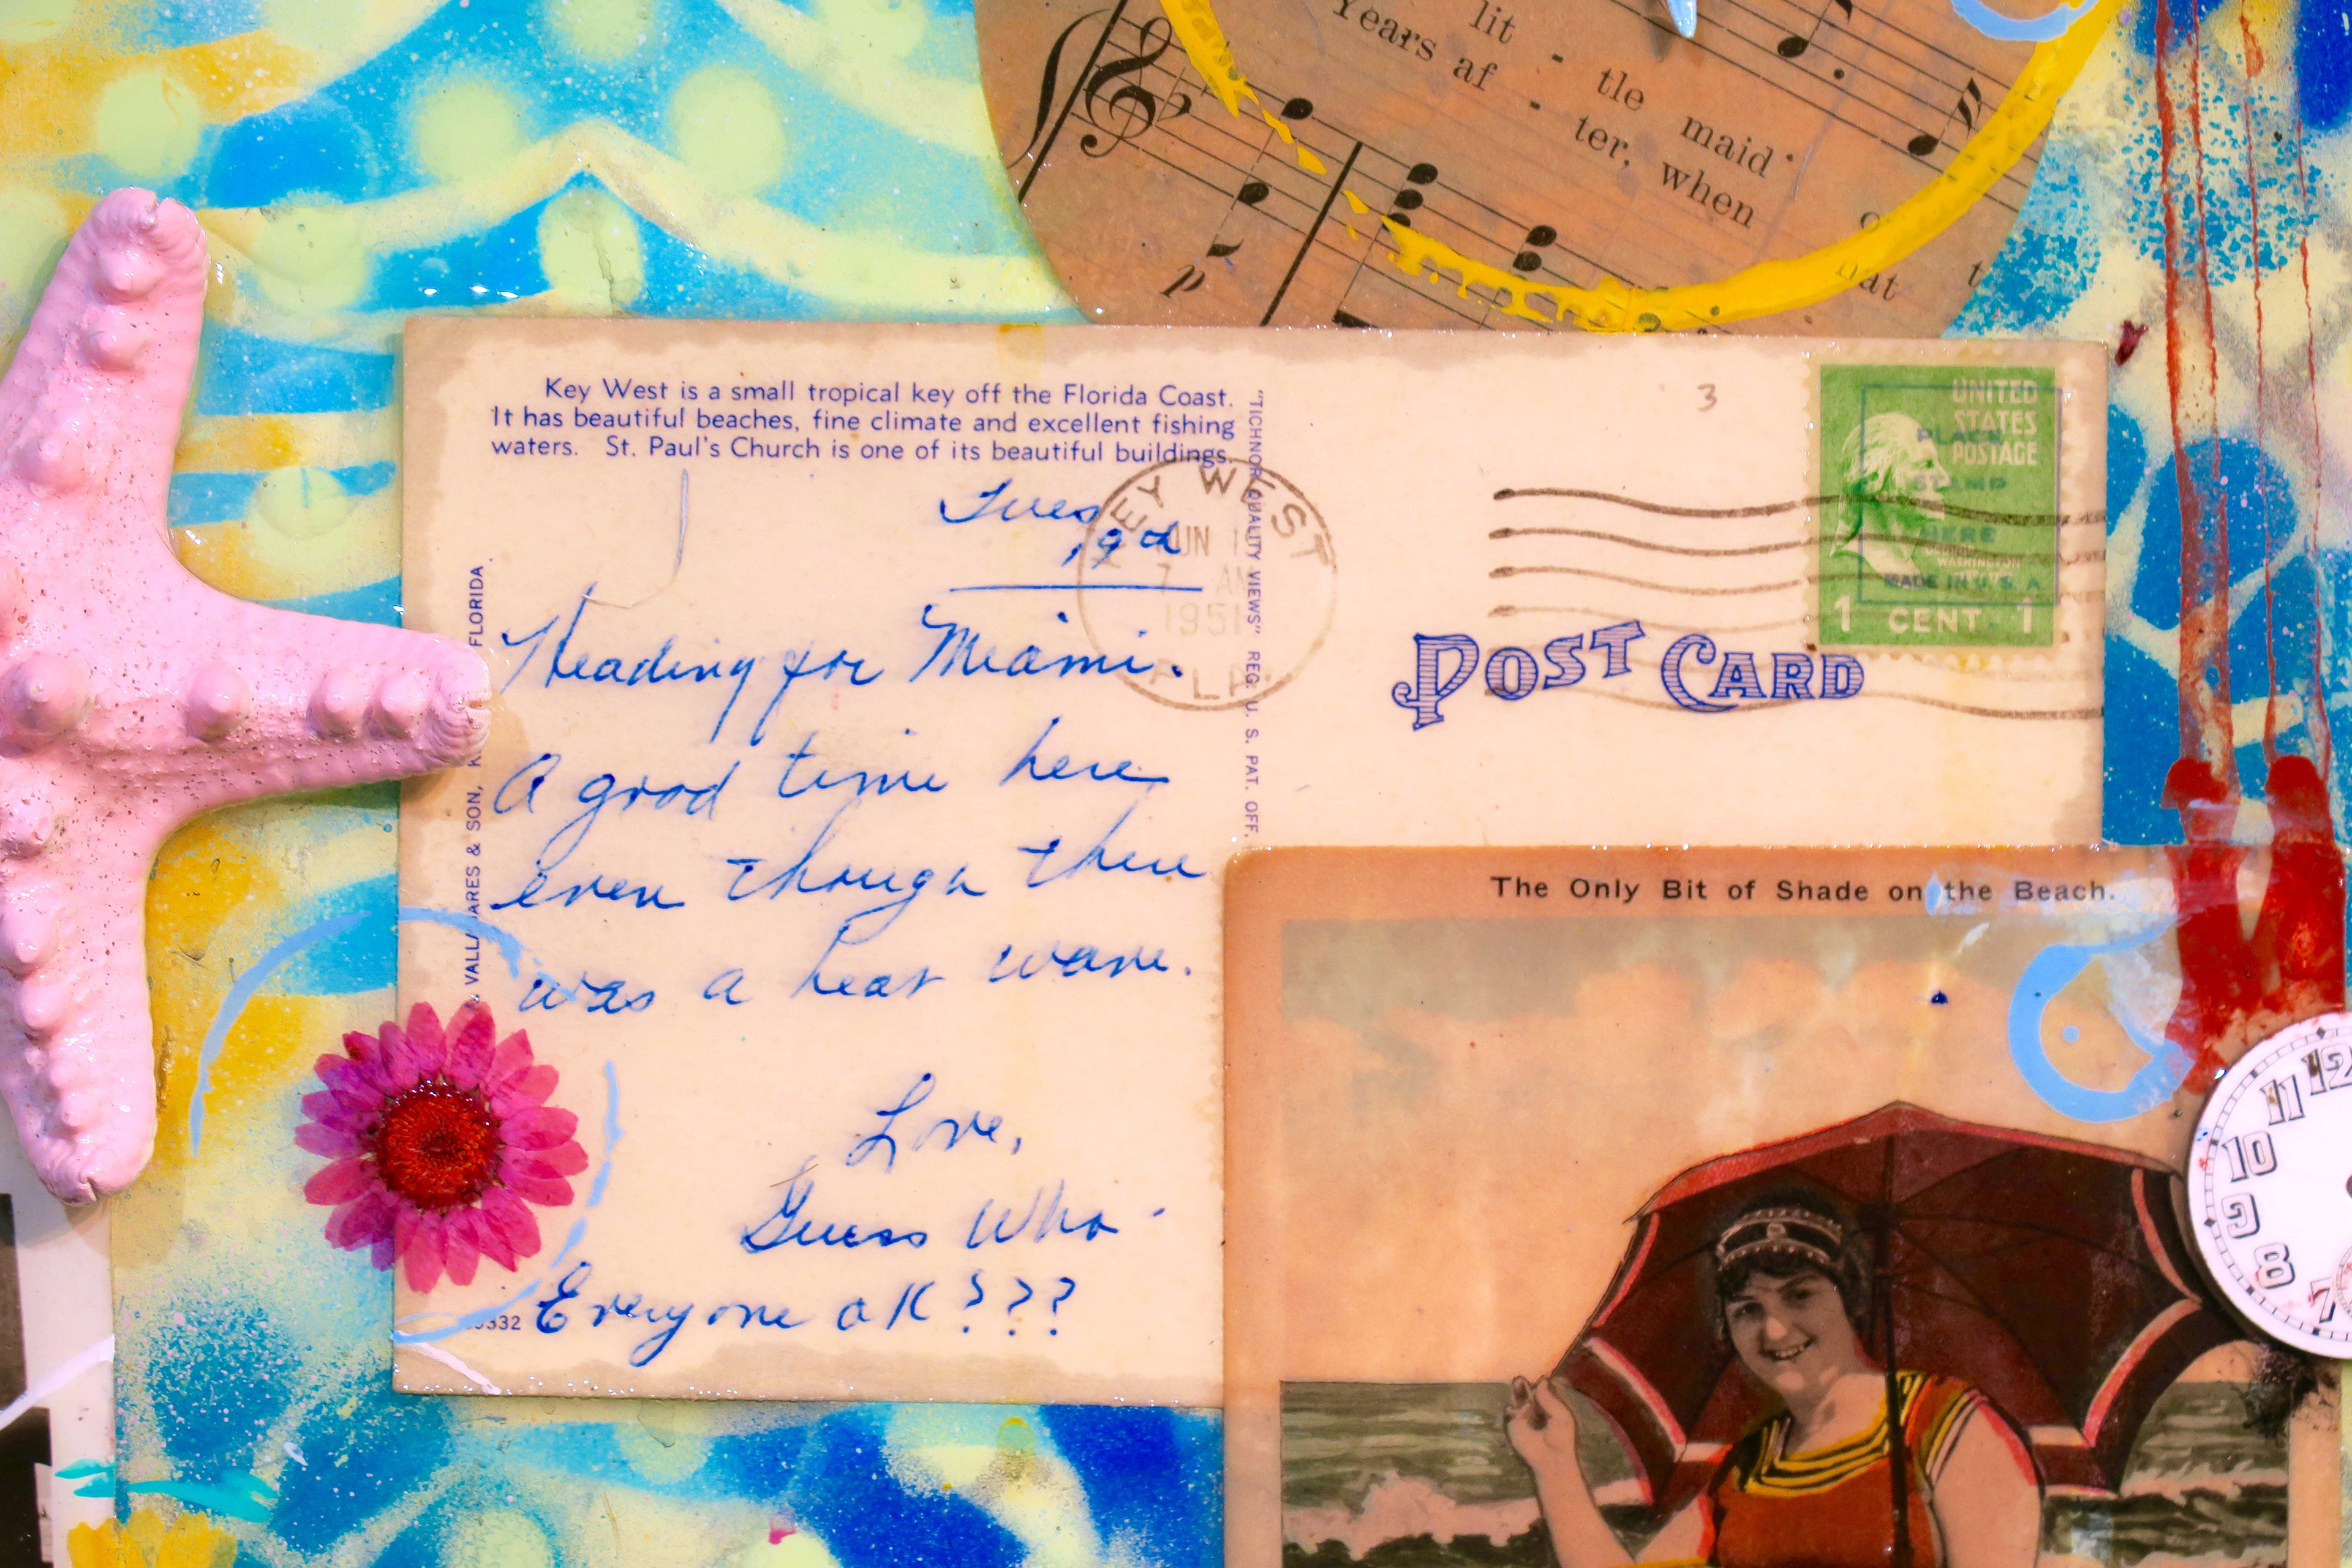 lit - tle maid
Years af - ter, when
p
Key West is a small tropical key off the Florida Coast.
It has beautiful beaches, fine climate and excellent fishing
waters. St. Paul's Church is one of its beautiful buildings.
Tues
19
Heading for Miami.
A good time here
even though there
was a heat wave.
Love,
Guess Who -
Everyone OK???
FLORIDA.
& SON,
"TICHNOR QUALITY VIEWS" REG. U. S. PAT. OFF.
KEY WEST
JUN
7 AM
1951
FLA.
3
UNITED
STATES
POSTAGE
PLACE
STAMP
HERE
WASHINGTON
MADE IN U. S. A.
1 CENT 1
POST CARD
The Only Bit of Shade on the Beach.
12
11
10
9
8
7